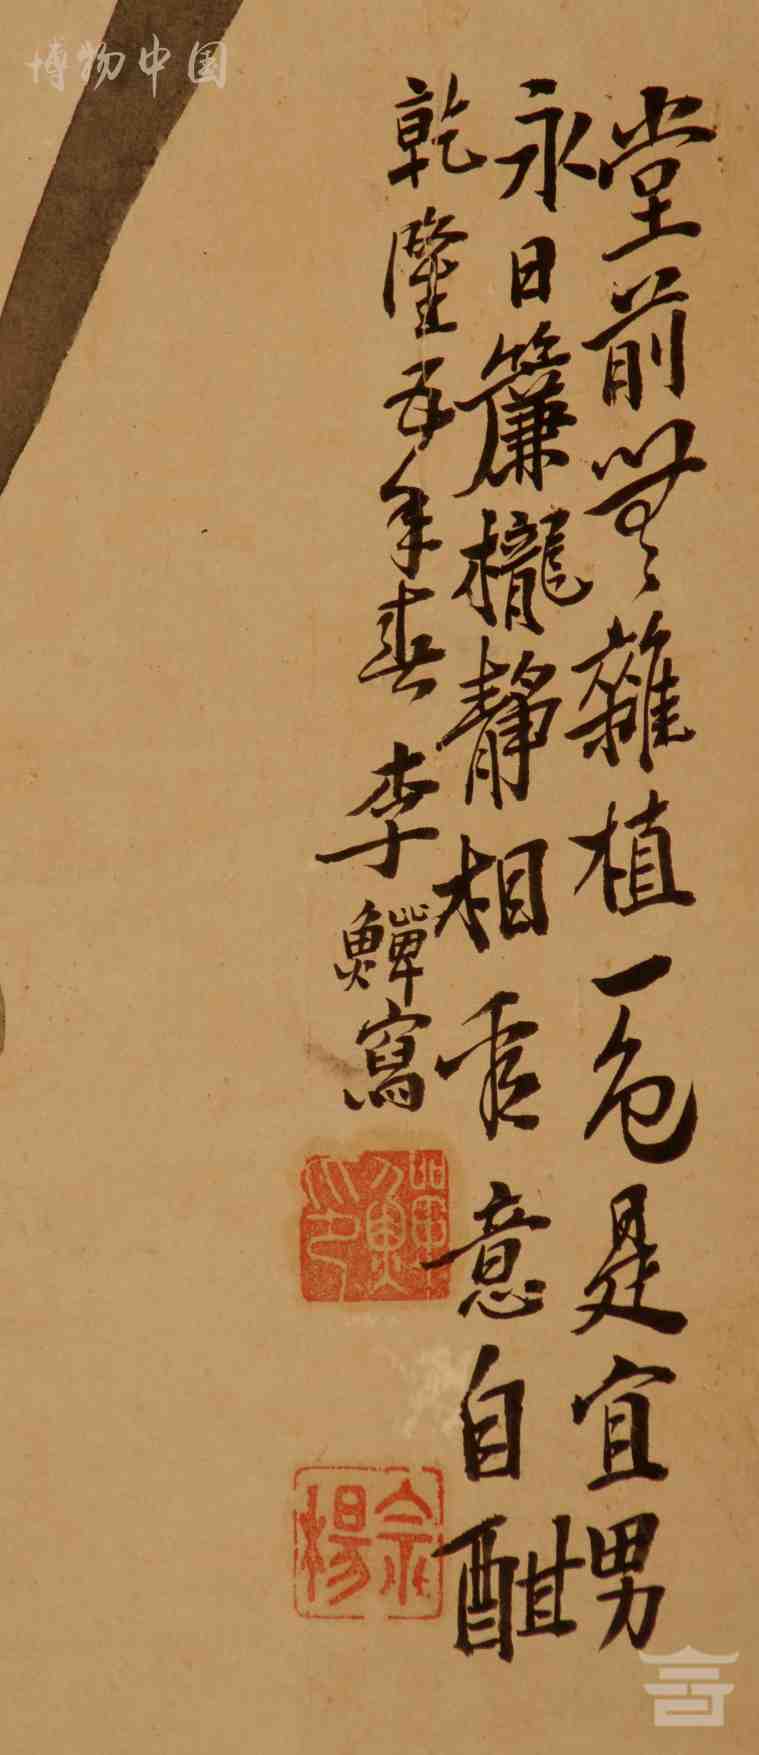 堂前無雜植一色是宜男
永日簾櫳靜相看意自酣
乾隆五年春李鱓寫
鱓印
宗楊
博物中国